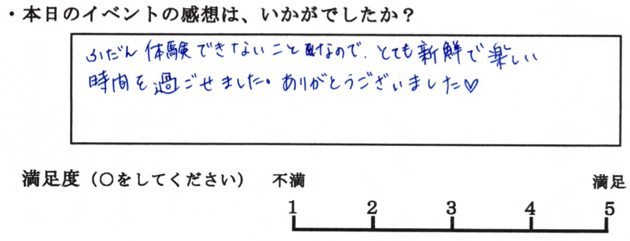 ・本日のイベントの感想は、いかがでしたか？
ふだん体験できないことなので、とても新鮮で楽しい
時間を過ごせました。ありがとうございました♡
満足度（○をしてください） 不満 満足
1 2 3 4 5